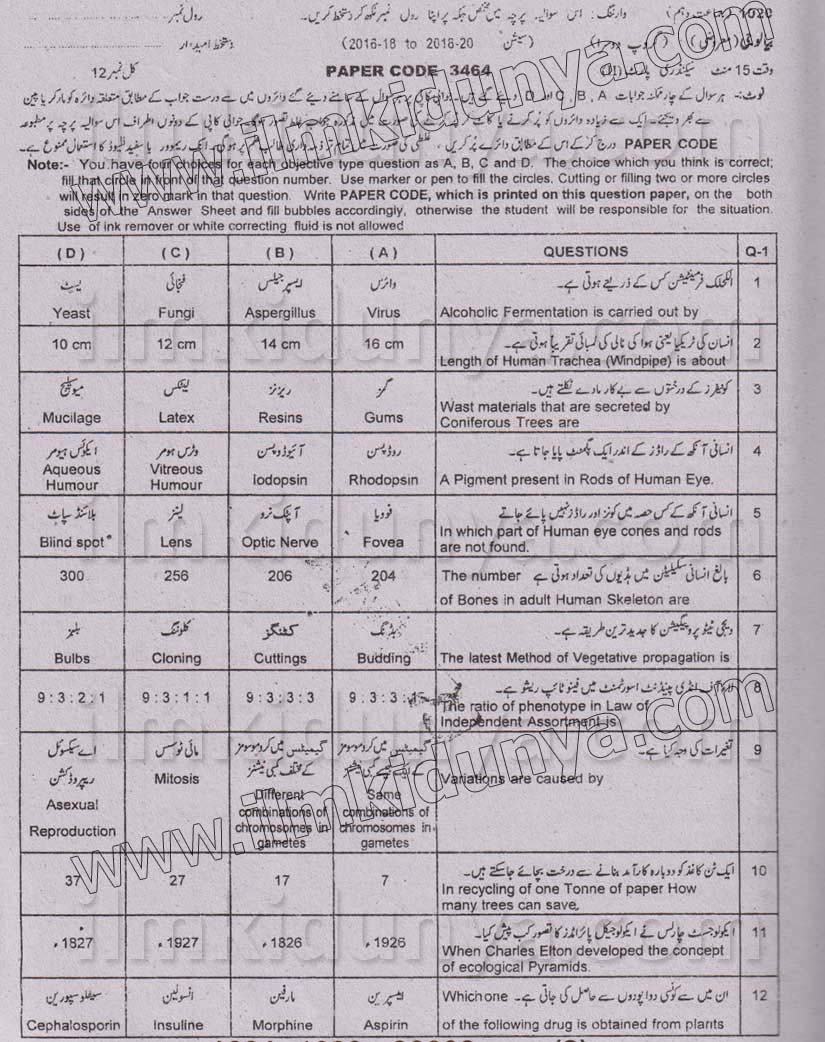 رول نمبر
وارننگ: اس سوالیہ پرچہ میں مختص جگہ پر اپنا رول نمبر لکھ کر دستخط کریں۔
1020
بیالوجی (معروضی)
(سیشن 2016-18 to 2018-20)
دستخط امیدوار
وقت 15 منٹ
PAPER CODE 3464
کل نمبر 12
PAPER CODE
Note:- You have four choices for each objective type question as A, B, C and D. The choice which you think is correct;
fill that circle in front of that question number. Use marker or pen to fill the circles. Cutting or filling two or more circles
will result in zero mark in that question. Write PAPER CODE, which is printed on this question paper, on the both
sides of the Answer Sheet and fill bubbles accordingly, otherwise the student will be responsible for the situation.
Use of ink remover or white correcting fluid is not allowed
(D) (C) (B) (A) QUESTIONS Q-1
ییسٹ فنجائی ایسپرجیلس وائرس الکحلک فرمینٹیشن کس کے ذریعے ہوتی ہے۔ 1
Yeast Fungi Aspergillus Virus Alcoholic Fermentation is carried out by
10 cm 12 cm 14 cm 16 cm انسان کی ٹریکیا یعنی ہوا کی نالی کی لمبائی تقریباً ہوتی ہے۔ 2
Length of Human Trachea (Windpipe) is about
میوسیلج لیٹکس ریزنز گمز کونیفرز کے درختوں سے بے کار مادے نکلتے ہیں۔ 3
Mucilage Latex Resins Gums Wast materials that are secreted by
Coniferous Trees are
ایکوئس ہیومر وٹرس ہیومر آئیوڈوپسن روڈوپسن انسانی آنکھ کے راڈز کے اندر ایک پگمنٹ پایا جاتا ہے۔ 4
Aqueous Humour Vitreous Humour Iodopsin Rhodopsin A Pigment present in Rods of Human Eye.
بلائنڈ سپاٹ لینز آپٹک نرو فوویا انسانی آنکھ کے کس حصہ میں کونز اور راڈز نہیں پائے جاتے 5
Blind spot Lens Optic Nerve Fovea In which part of Human eye cones and rods
are not found.
300 256 206 204 The number بالغ انسانی سکیلیٹن میں ہڈیوں کی تعداد ہوتی ہے 6
of Bones in adult Human Skeleton are
بلبز کلوننگ کٹنگز بڈنگ ویجی ٹیٹو پروپیگیشن کا جدید ترین طریقہ ہے۔ 7
Bulbs Cloning Cuttings Budding The latest Method of Vegetative propagation is
9:3:2:1 9:3:1:1 9:3:3:3 9:3:3:1 لاء آف انڈی پینڈنٹ اسورٹمنٹ میں فینوٹائپ ریشو ہے۔ 8
The ratio of phenotype in Law of
Independent Assortment is
اے سیکسوئل ریپروڈکشن مائی ٹوسس گیمیٹس میں کروموسومز کے مختلف کمبی نیشنز گیمیٹس میں کروموسومز کے ایک جیسے کمبی نیشنز تغیرات کی وجہ کیا ہے۔ 9
Asexual Reproduction Mitosis Different combinations of chromosomes in gametes Same combinations of chromosomes in gametes Variations are caused by
37 27 17 7 ایک ٹن کاغذ کو دوبارہ کارآمد بنانے سے درخت بچائے جاسکتے ہیں۔ 10
In recycling of one Tonne of paper How
many trees can save,
1827ء 1927ء 1826ء 1926ء ایکولوجسٹ چارلس نے ایکولوجیکل پائرامڈز کا تصور کب پیش کیا۔ 11
When Charles Elton developed the concept
of ecological Pyramids.
سیفلوسپورین انسولین مارفین ایسپرین Which one ان میں سے کونسی دوا پودوں سے حاصل کی جاتی ہے۔ 12
Cephalosporin Insuline Morphine Aspirin of the following drug is obtained from plants
www.ilmkidunya.com
www.ilmkidunya.com
ilmkidunya.com